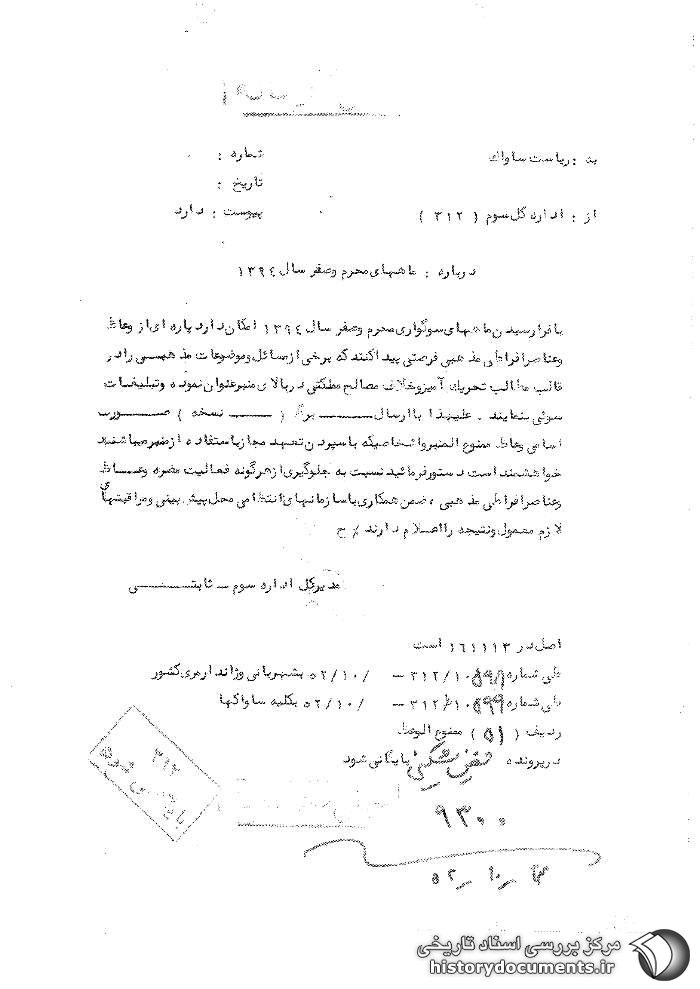 به : ریاست ساواک
شماره :
تاریخ :
از : اداره کل سوم ( ۳۱۲ )
پیوست : دارد
درباره : ماههای محرم و صفر سال ۱۳۹٤
با فرا رسیدن ماههای سوگواری محرم و صفر سال ۱۳۹٤ امکان دارد پاره ای از وعاظ
و عناصر افراطی مذهبی فرصتی پیدا کنند که برخی از مسائل و موضوعات مذهبی را در
قالب مطالب تحریک آمیز و خلاف مصالح مملکتی در بالای منبر عنوان نموده و تبلیغات
سوئی بنمایند . علیهذا با ارسال ــــــ برگ ( ــــــ نسخه ) صورت
اسامی وعاظ ممنوع المنبر و اشخاصیکه با سپردن تعهد مجاز باستفاده از منبر میباشند
خواهشمند است دستور فرمائید نسبت به جلوگیری از هرگونه فعالیت مضره وعاظ
و عناصر افراطی مذهبی ، ضمن همکاری با سازمانهای انتظامی محل پیش بینی و مراقبتهای
لازم معمول و نتیجه را اعلام دارند ٪ ح
مدیرکل اداره سوم ــ ثابتی
اصل در ۱٦۱۱۱۳ است
طی شماره ۳۱۲/۱۰ – /۵۲/۱۰ بشهربانی و ژاندارمری کشور
طی شماره ۳۱۲/۱۰ – /۵۲/۱۰ بکلیه ساواکها
ردیف ( ۵۱ ) ممنوع الوعظ
در پرونده بایگانی شود
۳۱۲
بایگانی شود
۹۳۰۰
۵۲
مرکز بررسی اسناد تاریخی
historydocuments.ir